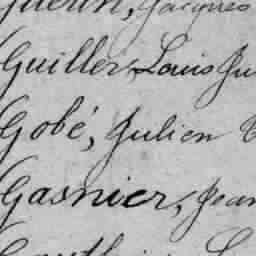 Jacques
Guiller, Louis Ju
Gobé, Julien
Gasnier, Jean